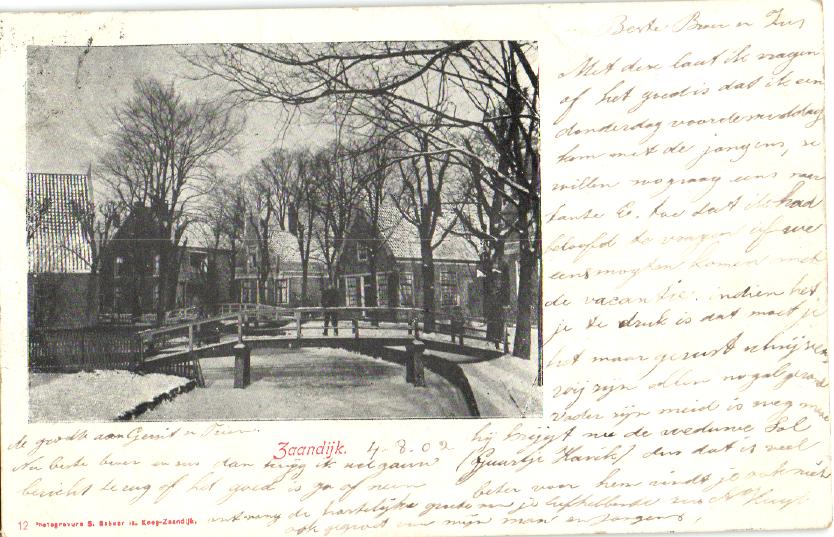 Beste Broer en Zus
Met deze laat ik vragen
of het goed is dat ik een
donderdag voordemiddag
kom met de jongens, ze
willen nog graag eens naar
tante E. toe dat ik had
beloofd te vragen of we
eens mogten komen met
de vacantie. indien het
je te druk is dat moet je
het maar gerust schrijven
wij zijn allen nogal gezond
Vader zijn meid is weg maar
hij krijgt nu de weduwe Sol
(Guurtje) dus dat is veel
beter voor hem vindt je ook niet
de groete aan Gerrit en
Zaandijk. 4-8.02
Nu beste broer en zus dan krijg ik wel gauw
bericht terug of het goed is ja of neen
ontvang de hartelijke groete van je liefhebbende zus
ook gegroet van mijn man en jongens,
12 Photogravure S. Bakker Jz. Koog-Zaandijk.